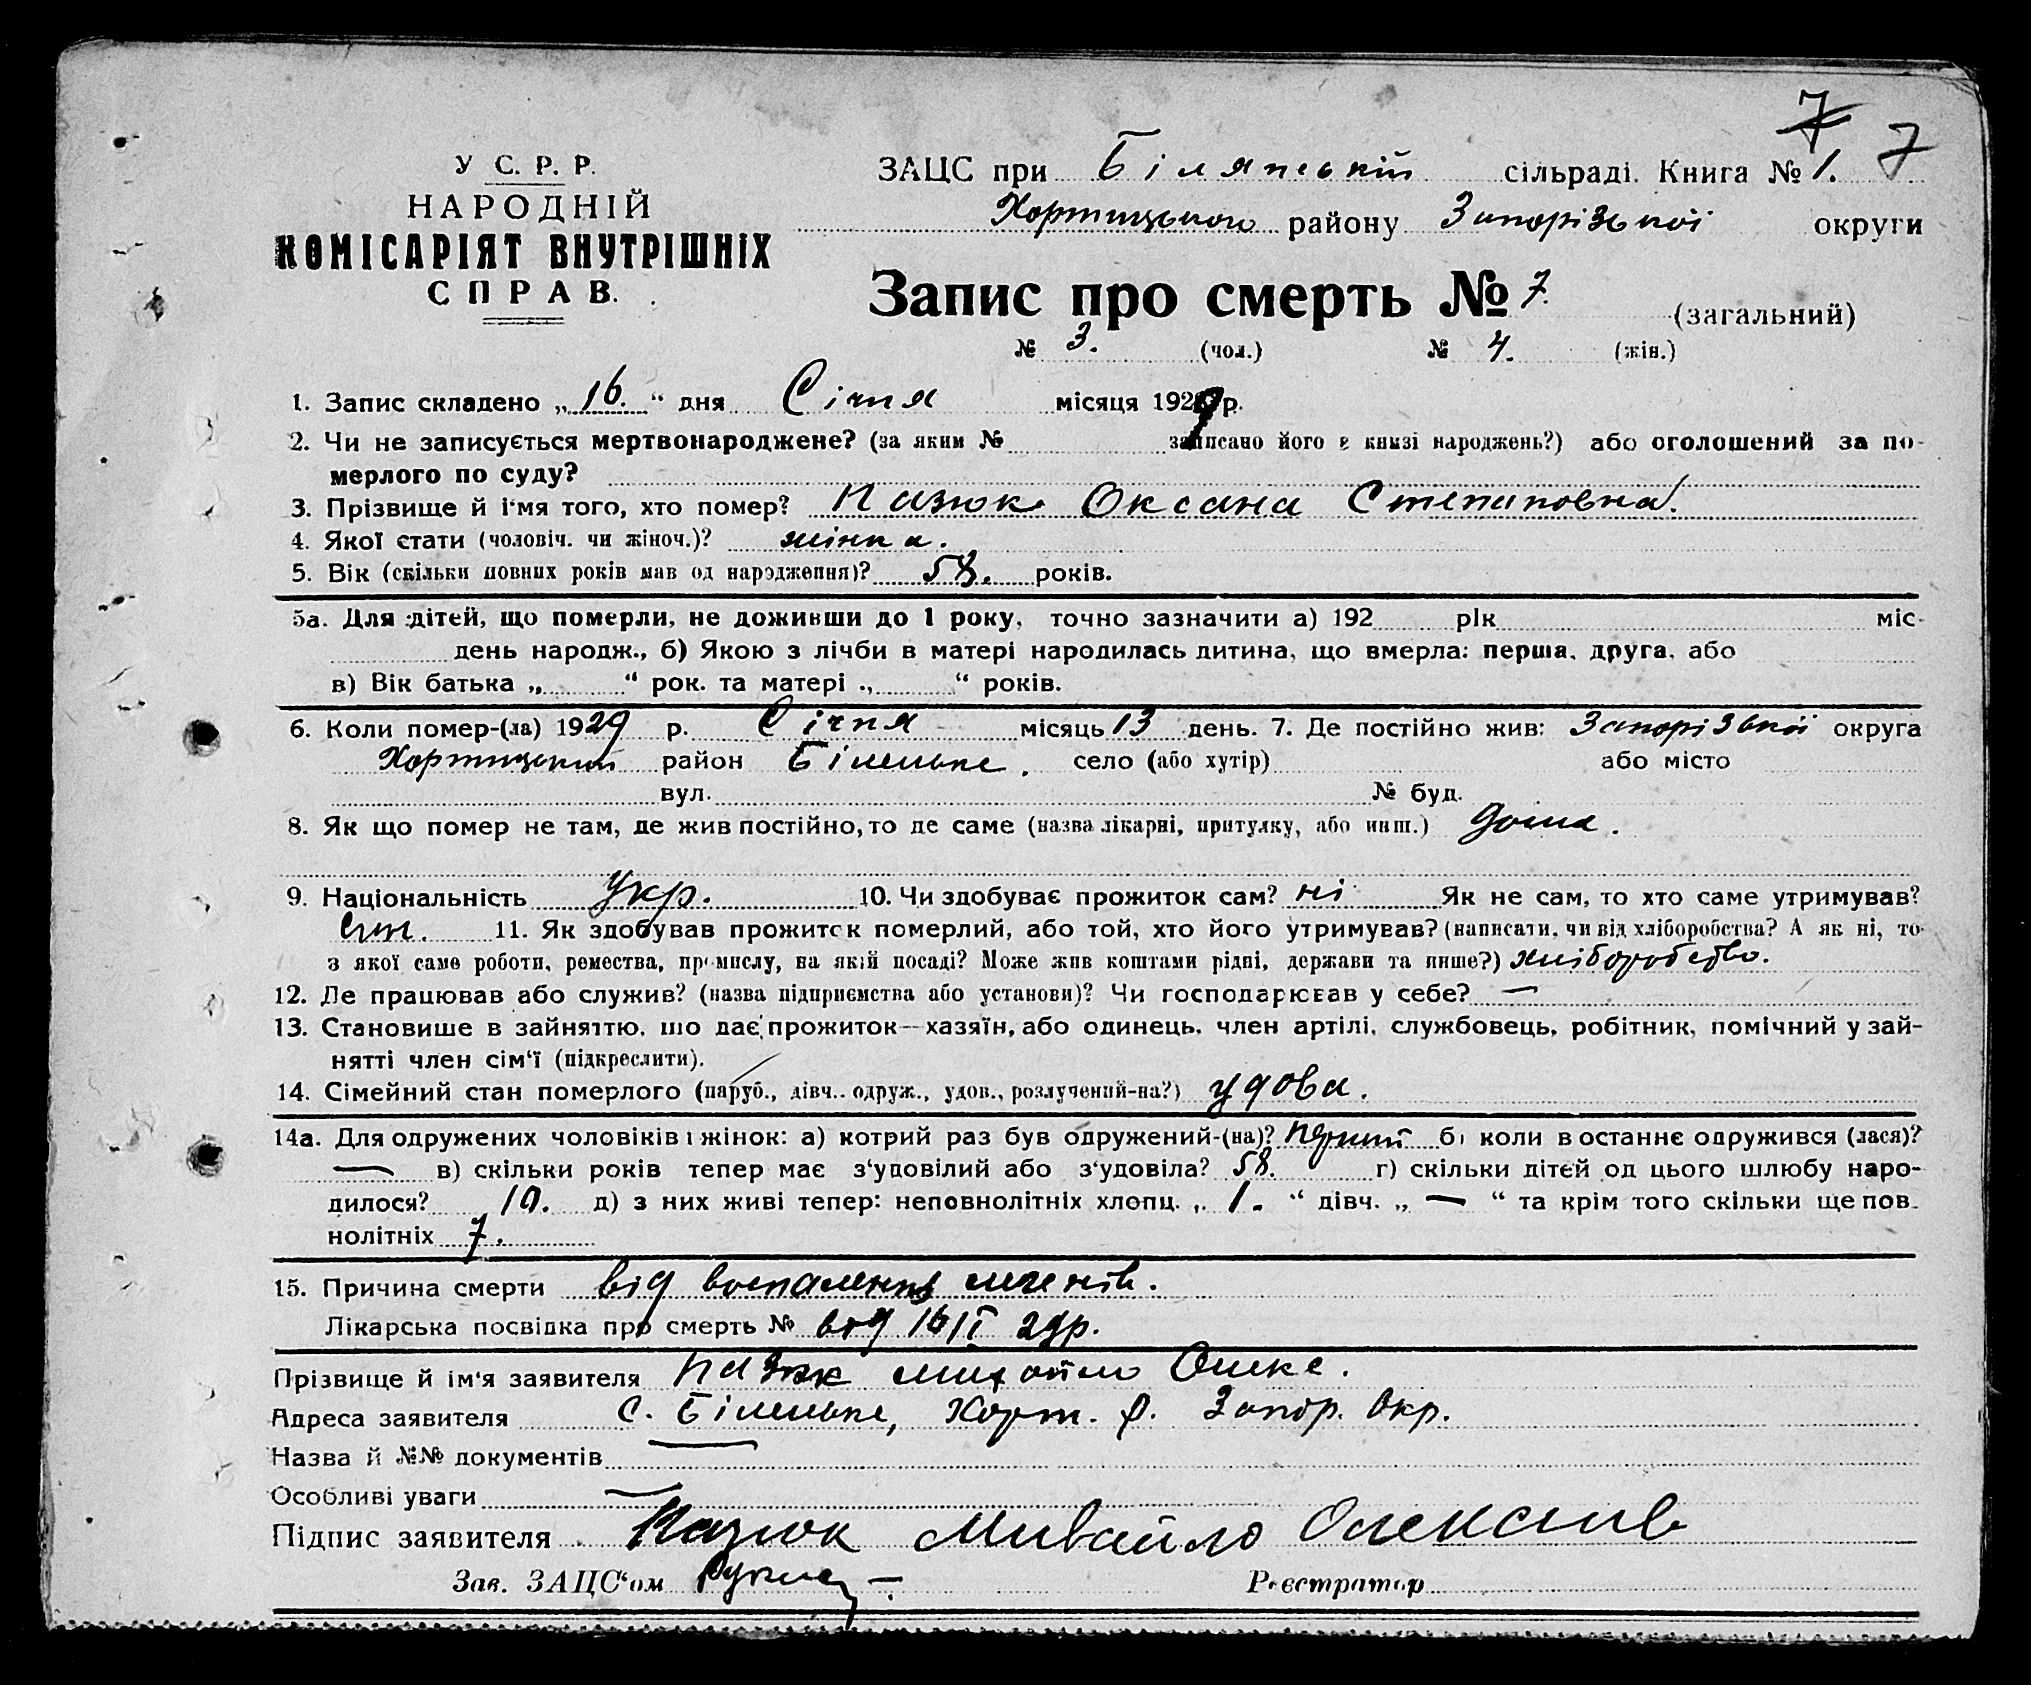 7 7
У С. Р. Р.
НАРОДНІЙ
КОМІСАРІЯТ ВНУТРІШНІХ
СПРАВ.
ЗАЦС при Білянській сільраді. Книга № 1.
Хортицького району Запорізької округи
Запис про смерть № 7. (загальний)
№ 3. (чол.) № 4. (жін.)
1. Запис складено „16.“ дня Січня місяця 1929 р.
2. Чи не записується мертвонароджене? (за яким № записано його в книзі народжень?) або оголошений за по-
мерлого по суду?
3. Прізвище й ім'я того, хто помер? Пазюк Оксана Степановна.
4. Якої стати (чоловіч. чи жіноч.)? жінка.
5. Вік (скільки повних років мав од народження)? 58. років.
5а. Для дітей, що померли, не доживши до 1 року, точно зазначити а) 192 рік міс.
день народж., б) Якою з лічби в матері народилась дитина, що вмерла: перша, друга, або
в) Вік батька „ “ рок. та матері „ “ років.
6. Коли помер-(ла) 1929 р. Січня місяць 13 день. 7. Де постійно жив: Запорізької округа
Хортицький район Біленьке. село (або хутір) або місто
вул. № буд.
8. Як що помер не там, де жив постійно, то де саме (назва лікарні, притулку, або инш.) дома.
9. Національність Укр. 10. Чи здобуває прожиток сам? ні Як не сам, то хто саме утримував?
син. 11. Як здобував прожиток померлий, або той, хто його утримував? (написати, чи від хліборобства? А як ні, то
з якої саме роботи, ремества, промислу, на якій посаді? Може жив коштами рідні, держави та инше?) хліборобство.
12. Де працював або служив? (назва підприємства або установи)? Чи господарював у себе? —
13. Становище в зайняттю, що дає прожиток—хазяїн, або одинець, член артілі, службовець, робітник, помічний у зай-
нятті член сім'ї (підкреслити).
14. Сімейний стан померлого (паруб., дівч.. одруж., удов., розлучений-на?) удова.
14а. Для одружених чоловіків і жінок: а) котрий раз був одружений-(на)? перший б) коли в останнє одружився (лася)?
— в) скільки років тепер має з'удовілий або з'удовіла? 58. г) скільки дітей од цього шлюбу наро-
дилося? 10. д) з них живі тепер: неповнолітніх хлопц. „ 1. “ дівч. „ — “ та крім того скільки ще пов-
нолітніх 7.
15. Причина смерти від воспаления легенів.
Лікарська посвідка про смерть № від 16/I 29р.
Прізвище й ім'я заявителя Пазюк Михайло Олекс.
Адреса заявителя с. Біленьке, Хорт. р. Запор. Окр.
Назва й №№ документів —
Особливі уваги —
Підпис заявителя Пазюк Михайло Олексіїв
Зав. ЗАЦС'ом Реєстратор